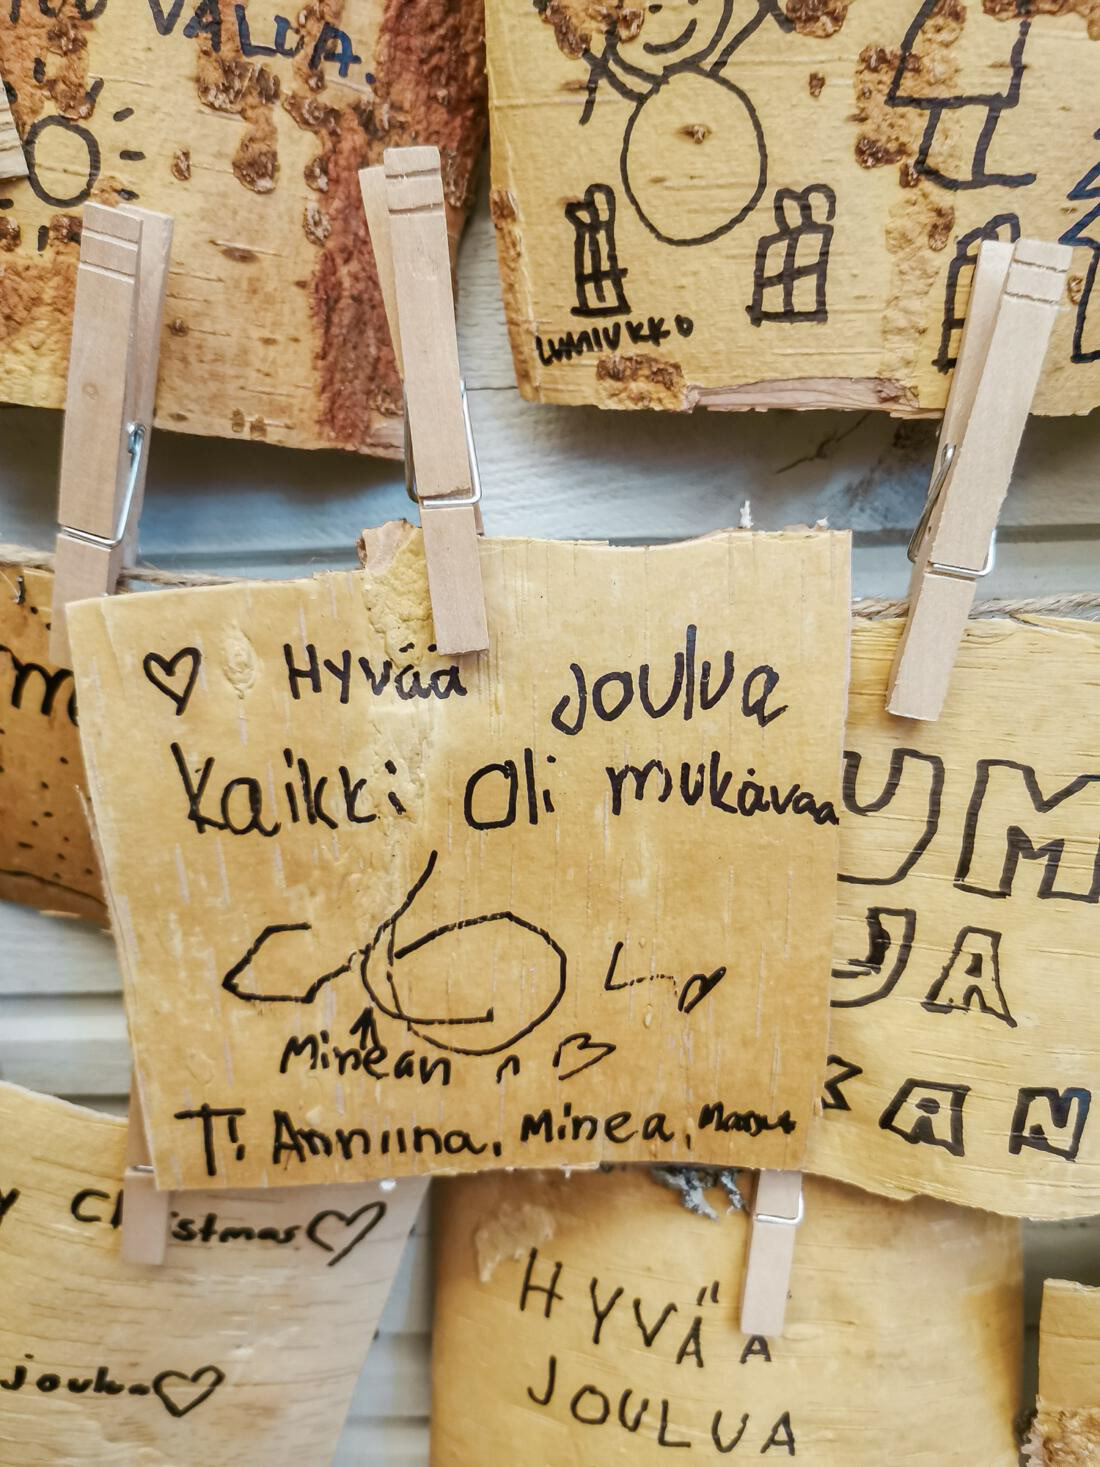 VALOA.
LUMIUKKO
Hyvää Joulua
Kaikki Oli mukavaa
Minean
T! Anniina, Minea,
UM
JA
AN
stmas
HYVÄÄ
JOULUA